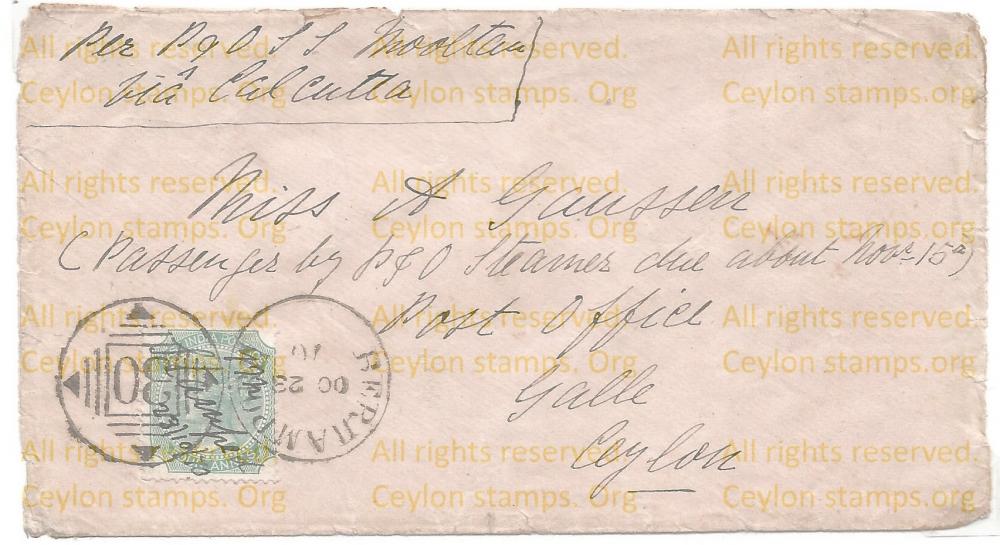 Per P&O SS Mooltan
viâ Calcutta
Miss A Gaussen
(Passenger by P&O Steamer due about Novr 15th)
Post Office
Galle
Ceylon
OC 23
10
INDIA POSTAGE
ANNAS
All rights reserved.
Ceylon stamps. Org
All rights reserved.
Ceylon stamps. org
All rights reserved.
Ceylon stamps. Org
All rights reserved.
Ceylon stamps. Org
All rights reserved.
Ceylon stamps. Org
All rights reserved.
Ceylon stamps. Org
All rights reserved.
Ceylon stamps. Org
All rights reserved.
Ceylon stamps. Org
All rights reserved.
Ceylon stamps. Org
All rights reserved.
Ceylon stamps. Org
All rights reserved.
Ceylon stamps. Org